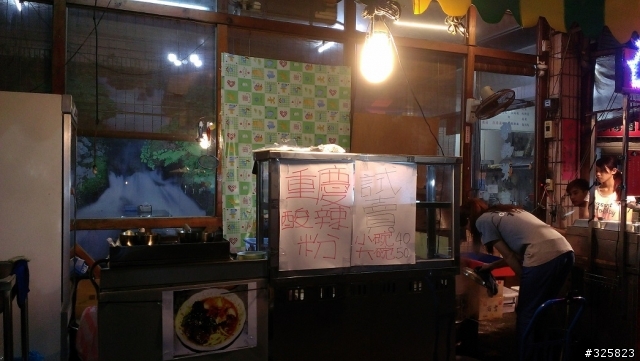 重慶
酸辣
粉
試
賣
小碗40
大碗50
#325823